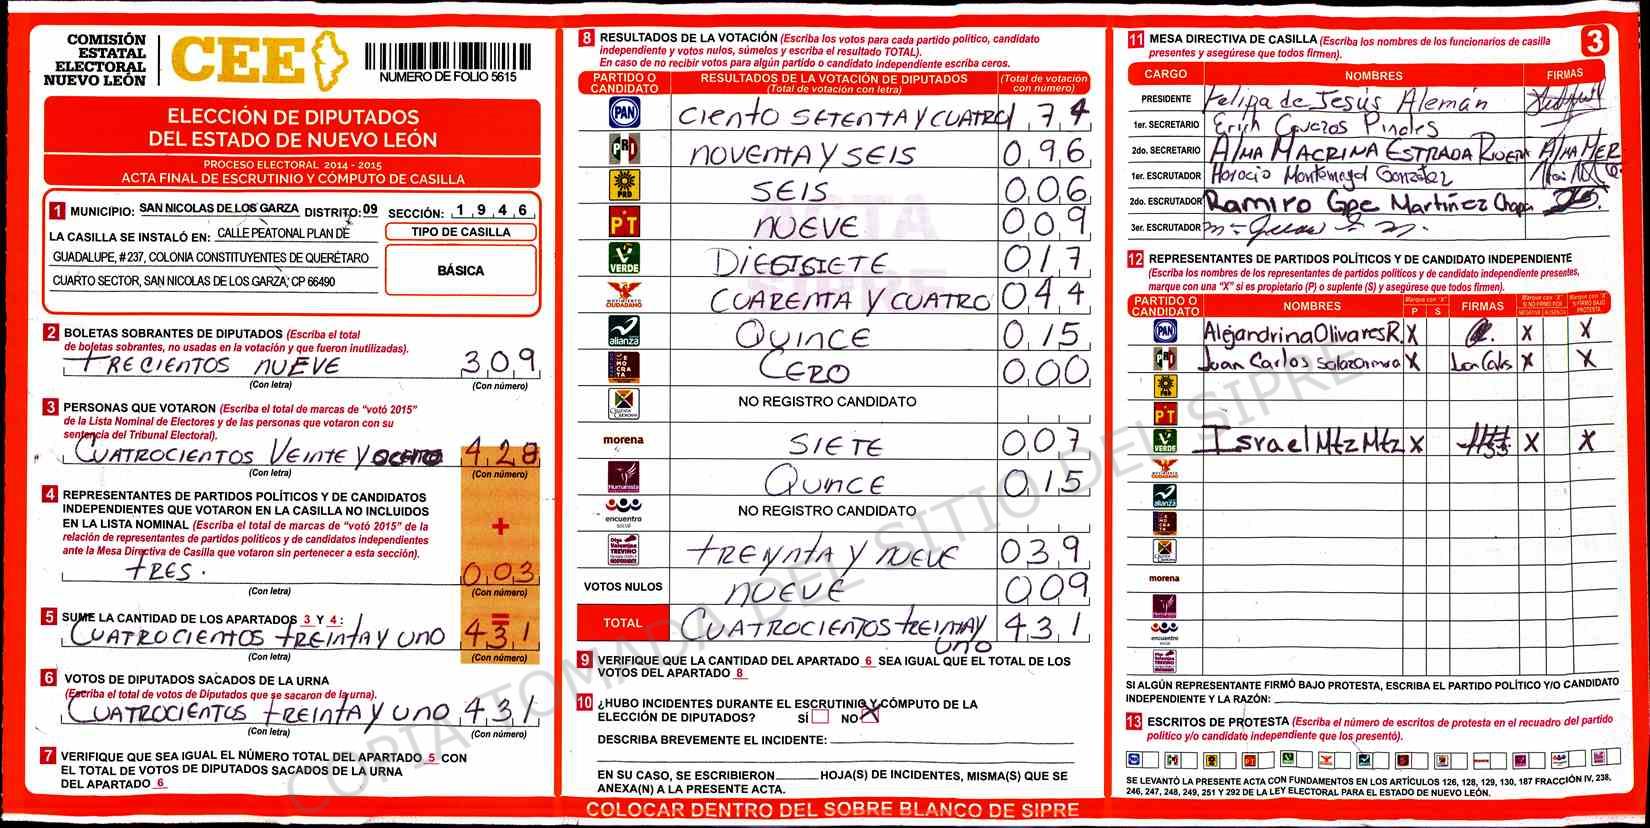 COMISIÓN
ESTATAL
ELECTORAL
NUEVO LEÓN
CEE
NUMERO DE FOLIO 5615
ELECCIÓN DE DIPUTADOS
DEL ESTADO DE NUEVO LEÓN
PROCESO ELECTORAL 2014 - 2015
ACTA FINAL DE ESCRUTINIO Y CÓMPUTO DE CASILLA
1 MUNICIPIO: SAN NICOLAS DE LOS GARZA DISTRITO: 09 SECCIÓN: 1 9 4 6
LA CASILLA SE INSTALÓ EN: CALLE PEATONAL PLAN DE
GUADALUPE, # 237, COLONIA CONSTITUYENTES DE QUERÉTARO
CUARTO SECTOR, SAN NICOLAS DE LOS GARZA, CP 66490
TIPO DE CASILLA
BÁSICA
2 BOLETAS SOBRANTES DE DIPUTADOS (Escriba el total
de boletas sobrantes, no usadas en la votación y que fueron inutilizadas).
TRECIENTOS NUEVE 309
(Con letra) (Con número)
3 PERSONAS QUE VOTARON (Escriba el total de marcas de "votó 2015"
de la Lista Nominal de Electores y de las personas que votaron con su
sentencia del Tribunal Electoral).
CUATROCIENTOS VEINTE Y OCHO 428
(Con letra) (Con número)
4 REPRESENTANTES DE PARTIDOS POLÍTICOS Y DE CANDIDATOS
INDEPENDIENTES QUE VOTARON EN LA CASILLA NO INCLUIDOS
EN LA LISTA NOMINAL (Escriba el total de marcas de "votó 2015" de la
relación de representantes de partidos políticos y de candidatos independientes
ante la Mesa Directiva de Casilla que votaron sin pertenecer a esta sección).
+
TRES. 0,03
(Con letra) (Con número)
=
5 SUME LA CANTIDAD DE LOS APARTADOS 3 Y 4:
CUATROCIENTOS TREINTA Y UNO 431
(Con letra) (Con número)
6 VOTOS DE DIPUTADOS SACADOS DE LA URNA
(Escriba el total de votos de Diputados que se sacaron de la urna).
CUATROCIENTOS TREINTA Y UNO 431
(Con letra) (Con número)
7 VERIFIQUE QUE SEA IGUAL EL NÚMERO TOTAL DEL APARTADO 5 CON
EL TOTAL DE VOTOS DE DIPUTADOS SACADOS DE LA URNA
DEL APARTADO 6
8 RESULTADOS DE LA VOTACIÓN (Escriba los votos para cada partido político, candidato
independiente y votos nulos, súmelos y escriba el resultado TOTAL).
En caso de no recibir votos para algún partido o candidato independiente escriba ceros.
PARTIDO O CANDIDATO RESULTADOS DE LA VOTACIÓN DE DIPUTADOS (Total de votación con letra) (Total de votación con número)
PAN CIENTO SETENTA Y CUATRO 174
PRI NOVENTA Y SEIS 096
PRD SEIS 006
PT NUEVE 009
VERDE DIEGISIETE 017
MOVIMIENTO CIUDADANO CUARENTA Y CUATRO 044
alianza QUINCE 015
DEMOCRATA CERO 000
NO REGISTRO CANDIDATO
morena SIETE 007
Humanista QUINCE 015
encuentro social NO REGISTRO CANDIDATO
TREYNTA Y NUEVE 039
VOTOS NULOS NUEVE 009
TOTAL CUATROCIENTOS TREINTAY 431
UNO
9 VERIFIQUE QUE LA CANTIDAD DEL APARTADO 6 SEA IGUAL QUE EL TOTAL DE LOS
VOTOS DEL APARTADO 8
10 ¿HUBO INCIDENTES DURANTE EL ESCRUTINIO Y CÓMPUTO DE LA
ELECCIÓN DE DIPUTADOS? SÍ NO X
DESCRIBA BREVEMENTE EL INCIDENTE:
EN SU CASO, SE ESCRIBIERON HOJA(S) DE INCIDENTES, MISMA(S) QUE SE
ANEXA(N) A LA PRESENTE ACTA.
COLOCAR DENTRO DEL SOBRE BLANCO DE SIPRE
11 MESA DIRECTIVA DE CASILLA (Escriba los nombres de los funcionarios de casilla
presentes y asegúrese que todos firmen).
3
CARGO NOMBRES FIRMAS
PRESIDENTE Felipa de Jesús Alemán
1er. SECRETARIO Erich Cavazos Pinales
2do. SECRETARIO ALMA MACRINA ESTRADA RIVERA ALMA MER
1er. ESCRUTADOR Horacio Montemayor González
2do. ESCRUTADOR Ramiro Gpe Martínez Chapa
3er. ESCRUTADOR
12 REPRESENTANTES DE PARTIDOS POLÍTICOS Y DE CANDIDATO INDEPENDIENTE
(Escriba los nombres de los representantes de partidos políticos y de candidato independiente presentes,
marque con una "X" si es propietario (P) o suplente (S) y asegúrese que todos firmen).
PARTIDO O CANDIDATO NOMBRES Marque con "X" P S FIRMAS Marque con "X" SI NO FIRMÓ POR NEGATIVA AUSENCIA Marque con "X" SI FIRMÓ BAJO PROTESTA
PAN Alejandrina Olivares R. X X X
PRI Juan Carlos Salazar X X X
PRD
PT
VERDE Israel Mtz Mtz X X X
alianza
morena
Humanista
encuentro social
SI ALGÚN REPRESENTANTE FIRMÓ BAJO PROTESTA, ESCRIBA EL PARTIDO POLÍTICO Y/O CANDIDATO
INDEPENDIENTE Y LA RAZÓN:
13 ESCRITOS DE PROTESTA (Escriba el número de escritos de protesta en el recuadro del partido
político y/o candidato independiente que los presentó).
SE LEVANTÓ LA PRESENTE ACTA CON FUNDAMENTOS EN LOS ARTÍCULOS 126, 128, 129, 130, 187 FRACCIÓN IV, 238,
246, 247, 248, 249, 251 Y 292 DE LA LEY ELECTORAL PARA EL ESTADO DE NUEVO LEÓN.
COPIA TOMADA DEL SITIO DEL SIPRE
ACTA
SIPRE